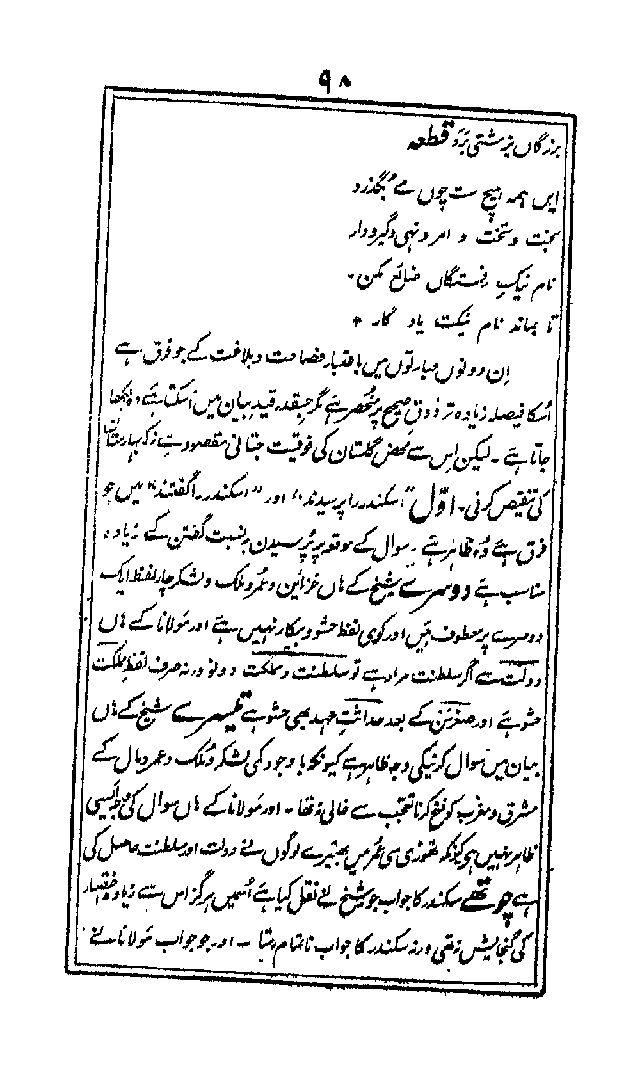 ۹۸
بزرگاں بزشتی بَرَد قطعہ
ایں ہمہ ہیچ ست چوں مے بُگذرد
بخت و تخت و امر و نہی و گیر و دار
نام نیکِ رفتگاں ضائع مکن۔
تا بماند نام نیکت یاد گار *
اِن دونوں عبارتوں میں باعتبار فصاحت و بلاغت کے جو فرق ہے
اُسکا فیصلہ زیادہ تر ذوق صحیح پر منحصر ہے مگر جسقدر قید بیان میں آسکتا ہے وہ لکھا
جاتا ہے۔ لیکن اِس سے محض گلستان کی فوقیت جتانی مقصود ہے نہ کہ بہارستان
کی تنقیص کرنی۔ اوّل "اسکندر را پرسیدند" اور "اسکندر را گفتند" میں جو
فرق ہے وُہ ظاہر ہے۔ سوال کے موقع پر پُرسیدن بہ نسبت گفتن کے زیادہ
مناسب ہے دوسرے شیخ کے ہاں خزائن و عمر و ملک و لشکر چار لفظ ایک
دوسرے پر معطوف ہیں اور کوئی لفظ حشو و بیکار نہیں ہے اور مولانا کے ہاں
دولت سے اگر سلطنت مراد ہے تو سلطنت و مملکت دونو ورنہ صرف لفظ مملکت
حشو ہے اور صغر سن کے بعد حداثتِ عہد بھی حشو ہے تیسرے شیخ کے ہاں
بیان میں سوال کرنیکی وجہ ظاہر ہے کیونکہ باوجود کمی لشکر و ملک و عمر و مال کے
مشرق و مغرب کو فتح کرنا تعجب سے خالی نہ تھا۔ اور مولانا کے ہاں سوال کی وجہ ایسی
ظاہر نہیں ہو کیونکہ تھوڑی سی عمر میں بہتیرے لوگوں نے دولت اور سلطنت حاصل کی
ہے چوتھے سکندر کا جواب جو شیخ نے نقل کیا ہے اُسمیں ہرگز اس سے زیادہ اختصار
کی گنجایش نہ تھی ورنہ سکندر کا جواب ناتمام رہتا۔ اور جو جواب مولانا نے